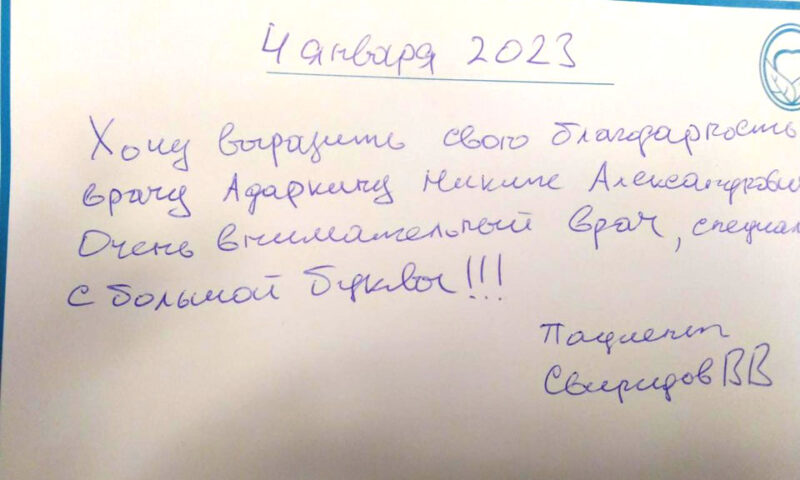 4 января 2023
Хочу выразить свою благодарность
врачу Адаркичу Никите Александрович
Очень внимательный врач, специал
с большой буквы!!!
Пациент
Свиридов ВВ